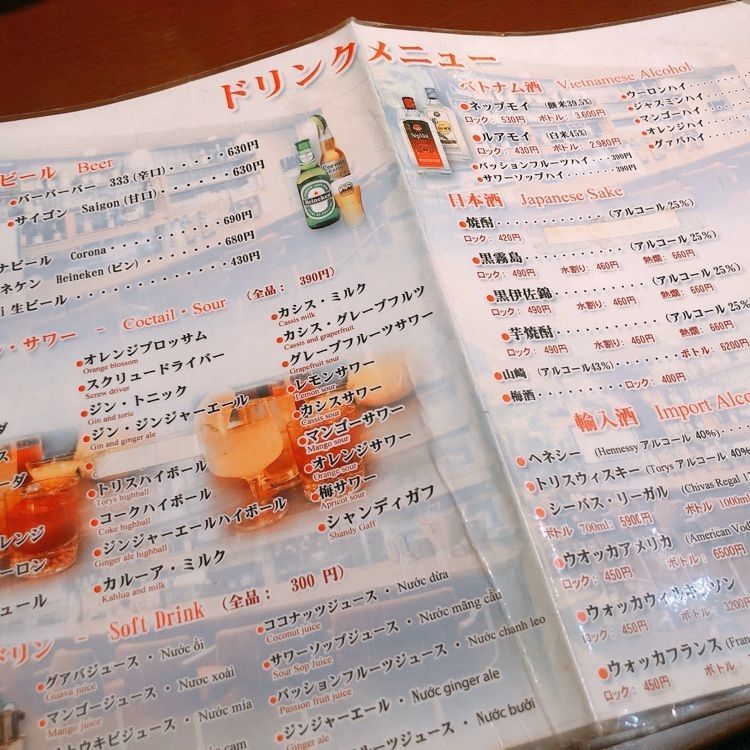 ドリンクメニュー
ビール Beer
●バーバーバー 333 (辛口)・・・・・630円
●サイゴン Saigon (甘口)・・・・・・630円
ナビール Corona・・・・・・・・・・690円
ネケン Heineken (ビン)・・・・・・・680円
i 生ビール・・・・・・・・・・・・・430円
・サワー － Coctail・Sour (全品： 390円)
●オレンジブロッサム
Orange blossom
●スクリュードライバー
Screw driver
●ジン・トニック
Gin and toric
●ジン・ジンジャーエール
Gin and ginger ale
●トリスハイボール
Torys highball
●コークハイボール
Coke highball
●ジンジャーエールハイボール
Ginger ale highball
●カルーア・ミルク
Kahlua and milk
●カシス・ミルク
Cassis milk
●カシス・グレープフルツ
Cassis and grapefruit
●グレープフルーツサワー
Grapefruit sour
●レモンサワー
Lemon sour
●カシスサワー
Cassis sour
●マンゴーサワー
Mango sour
●オレンジサワー
Orange sour
●梅サワー
Apricot sour
●シャンディガフ
Shandy Gaff
ドリン － Soft Drink (全品： 300 円)
●グアバジュース・Nước ổi
Guava juice
●マンゴージュース・Nước xoài
Mango juice
トウキビジュース・Nước mía
●ココナッツジュース・Nước dừa
Coconut juice
●サワーソップジュース・Nước mãng cầu
Sour Sop Juice
●パッションフルーツジュース・Nước chanh leo
Passion fruit juice
●ジンジャーエール・Nước ginger ale
ルーツジュース・Nước bưởi
ベトナム酒 Vietnamese Alcohol
●ネップモイ (餅米39.5%)
ロック： 530円 ボトル： 3.600円
●ルアモイ (白米45%)
ロック： 430円 ボトル： 2.980円
●パッションフルーツハイ・・・・390円
●サワーソップハイ・・・・・390円
●ウーロンハイ
●ジャスミンハイ
●マンゴーハイ
●オレンジハイ
●グァバハイ
日本酒 Japanese Sake
●焼酎・・・・・・・・・・(アルコール 25%)
ロック： 420円
●黒霧島・・・・・・・・・(アルコール 25%)
ロック： 490円 水割り： 460円 熱燗： 660円
●黒伊佐錦・・・・・・・・(アルコール 25%)
ロック： 490円 水割り： 460円 熱燗： 660円
●芋焼酎・・・・・・・・・(アルコール 25%
ロック： 490円 水割り： 460円 熱燗： 660円
●山崎 (アルコール43%)・・・・ボトル： 6200円
●梅酒・・・・・・・・・ロック： 400円
輸入酒 Import Alco
●ヘネシー (Hennessy アルコール 40%)・・・
●トリスウィスキー (Torys アルコール 40%
●シーバス・リーガル (Chivas Regal
ボトル 700ml： 5900円 ボトル 1000m
●ウオッカアメリカ (American Vod
ロック： 450円 ボトル： 6500円
●ウォッカウィルキンソン
ロック： 450円 ボトル： 3200
●ウォッカフランス (Fran
ロック： 450円 ボトル：